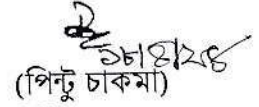 ১৮।৪।২৪
(পিন্টু চাকমা)